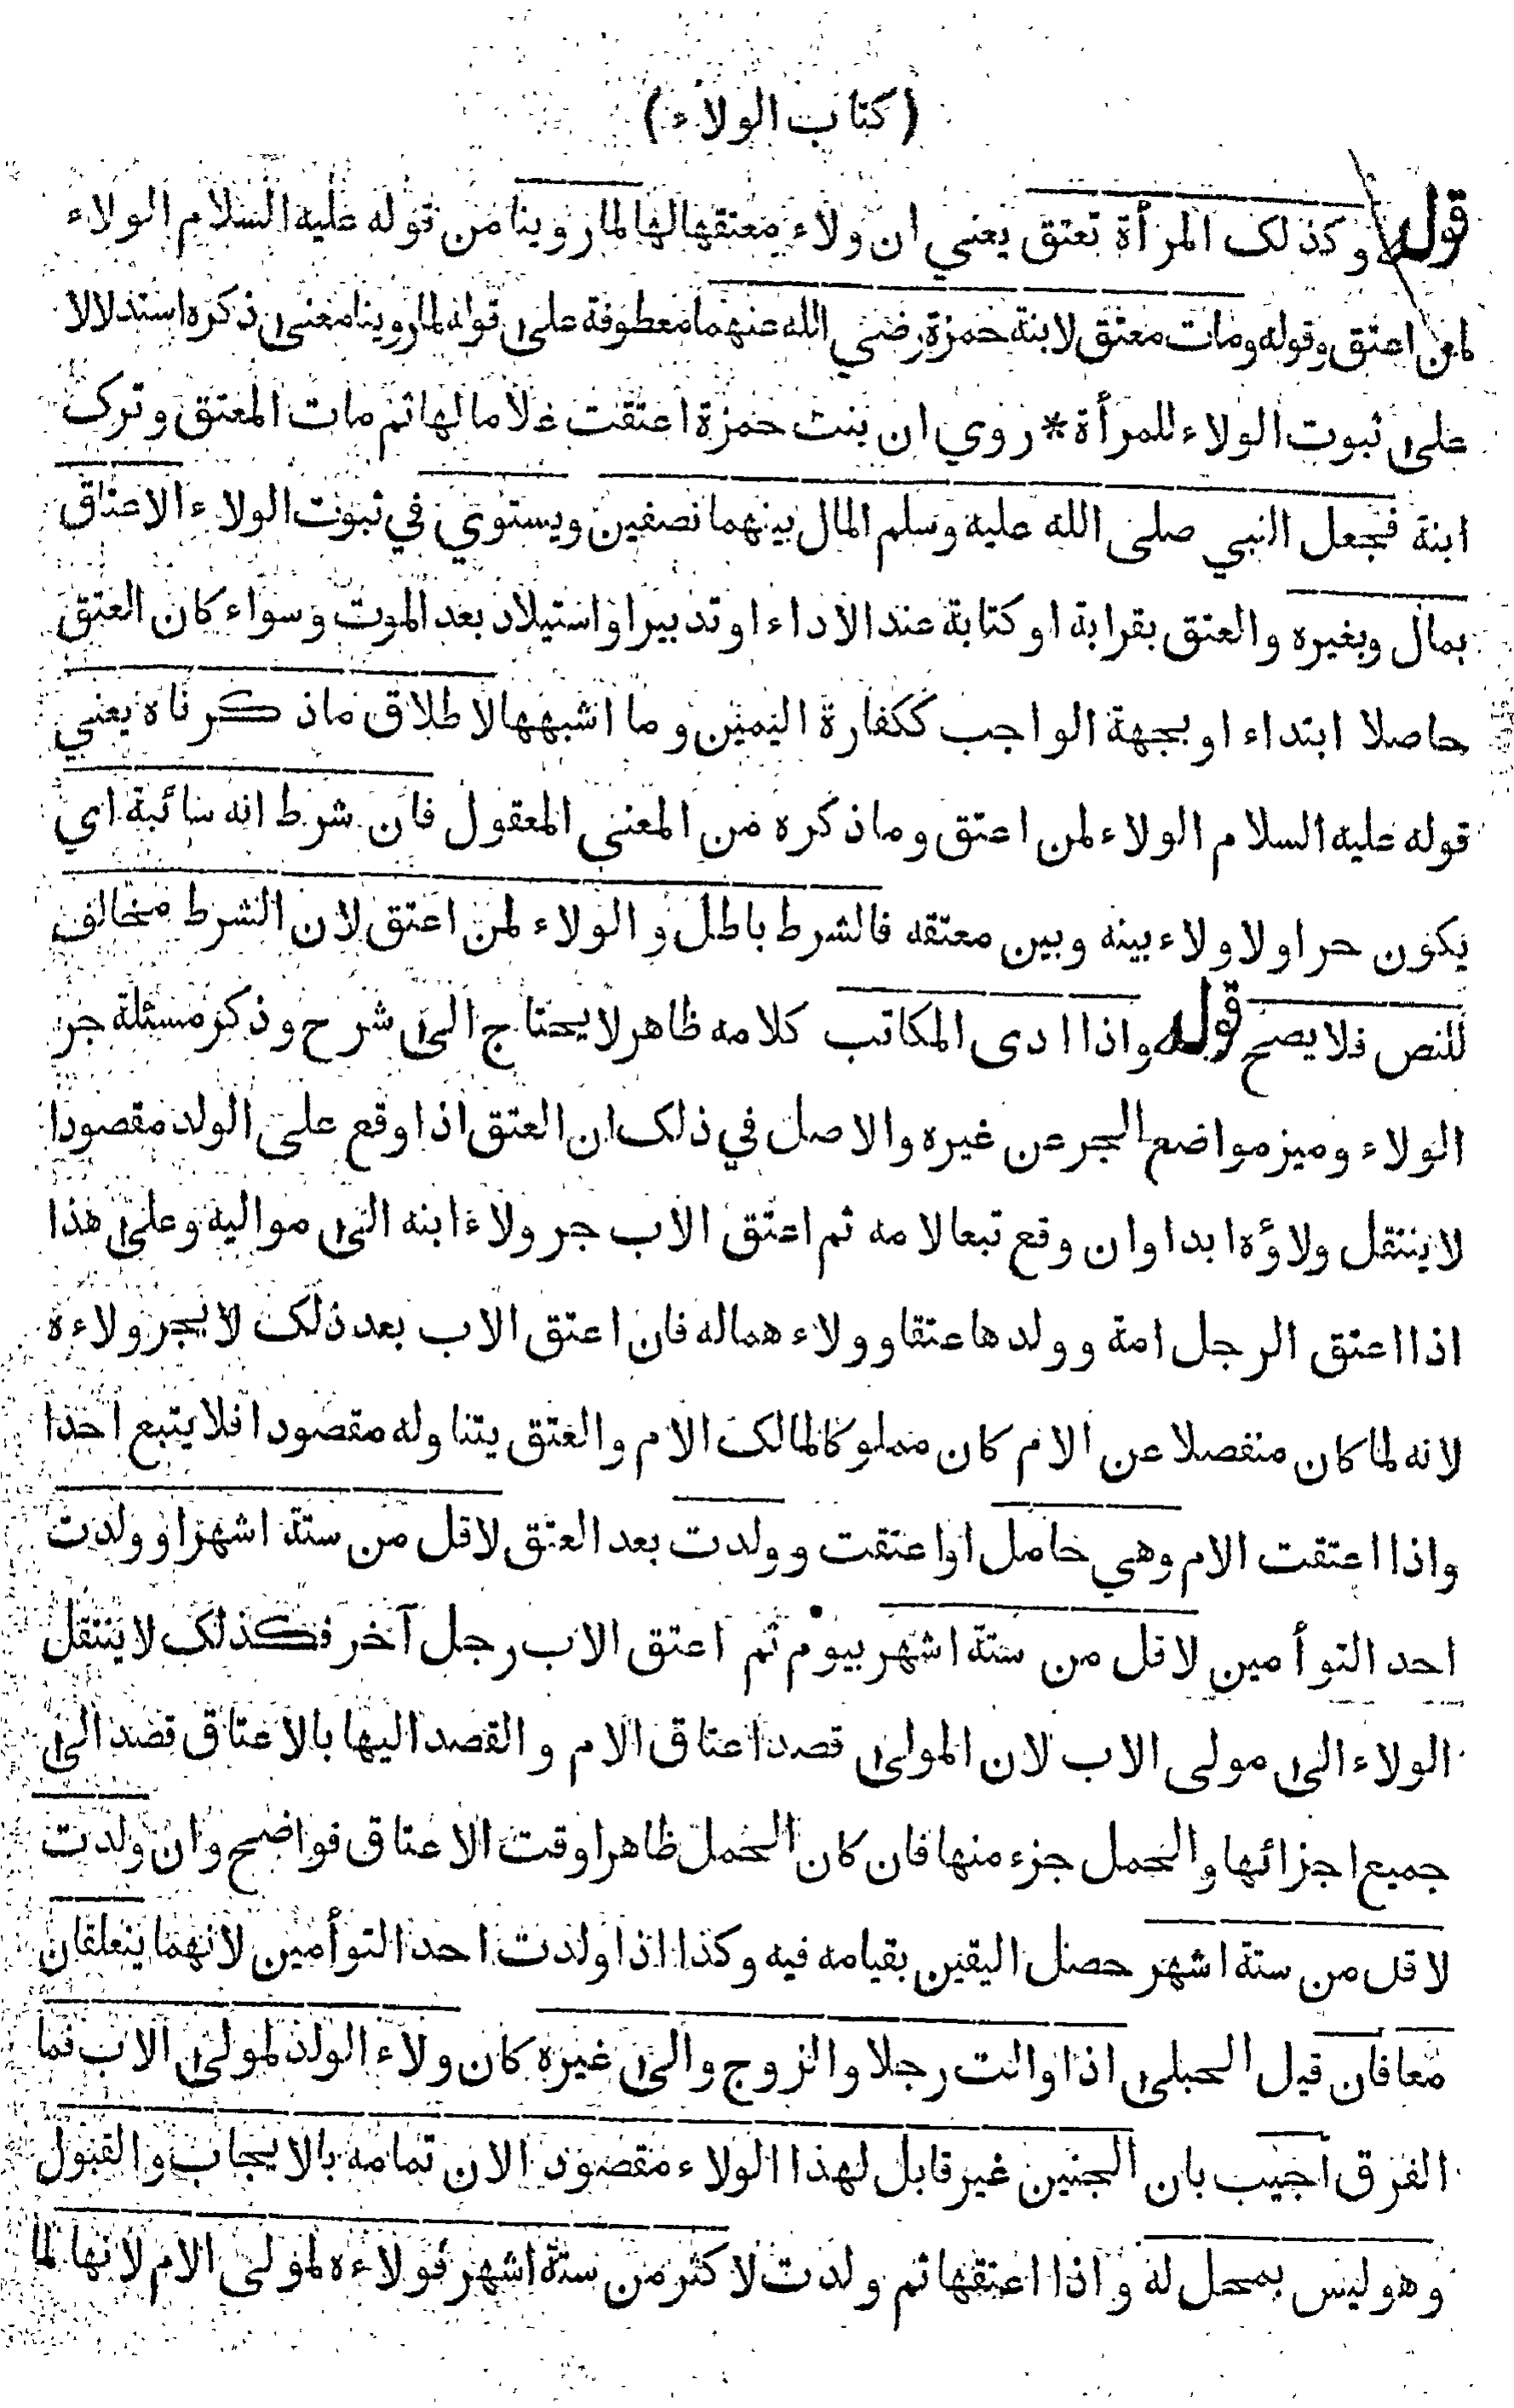 (كتاب الولاء)
قوله وكذلك المرأة تعتق يعني ان ولاء معتقها لها لما روينا من قوله عليه السلام الولاء
لمن اعتق وقوله ومات معتق لابنة حمزة رضي الله عنهما معطوفة على قوله لما روينا معنى ذكره استدلالا
على ثبوت الولاء للمرأة * روي ان بنت حمزة اعتقت غلاما لها ثم مات المعتق وترك
ابنة فجعل النبي صلى الله عليه وسلم المال بينهما نصفين ويستوي في ثبوت الولاء الاعتاق
بمال وبغيره والعتق بقرابة او كتابة عند الاداء او تدبير او استيلاد بعد الموت وسواء كان العتق
حاصلا ابتداء او بجهة الواجب ككفارة اليمين وما اشبهها لاطلاق ما ذكرناه يعني
قوله عليه السلام الولاء لمن اعتق وما ذكره من المعنى المعقول فان شرط انه سائبة اي
يكون حرا ولا ولاء بينه وبين معتقه فالشرط باطل والولاء لمن اعتق لان الشرط مخالف
للنص فلا يصح قوله واذا ادى المكاتب كلامه ظاهر لا يحتاج الى شرح وذكر مسئلة جر
الولاء وميز مواضع الجر عن غيره والاصل في ذلك ان العتق اذا وقع على الولد مقصودا
لا ينتقل ولاؤه ابدا وان وقع تبعا لامه ثم اعتق الاب جر ولاء ابنه الى مواليه وعلى هذا
اذا اعتق الرجل امة وولدها عتقا وولاءهما له فان اعتق الاب بعد ذلك لا يجر ولاءه
لانه لما كان منفصلا عن الام كان مملوكا لمالك الام والعتق يتناوله مقصودا فلا يتبع احدا
واذا اعتقت الام وهي حامل او اعتقت وولدت بعد العتق لاقل من ستة اشهر او ولدت
احد التوأمين لاقل من ستة اشهر بيوم ثم اعتق الاب رجل آخر فكذلك لا ينتقل
الولاء الى مولى الاب لان المولى قصد اعتاق الام والقصد اليها بالاعتاق قصد الى
جميع اجزائها والحمل جزء منها فان كان الحمل ظاهرا وقت الاعتاق فواضح وان ولدت
لاقل من ستة اشهر حصل اليقين بقيامه فيه وكذا اذا ولدت احد التوأمين لانهما يتعلقان
معا فان قيل الحبلى اذا والت رجلا والزوج والى غيره كان ولاء الولد لمولى الاب فما
الفرق اجيب بان الجنين غير قابل لهذا الولاء مقصودا لان تمامه بالايجاب والقبول
وهو ليس بمحل له واذا اعتقها ثم ولدت لاكثر من ستة اشهر فولاءه لمولى الام لانها لما